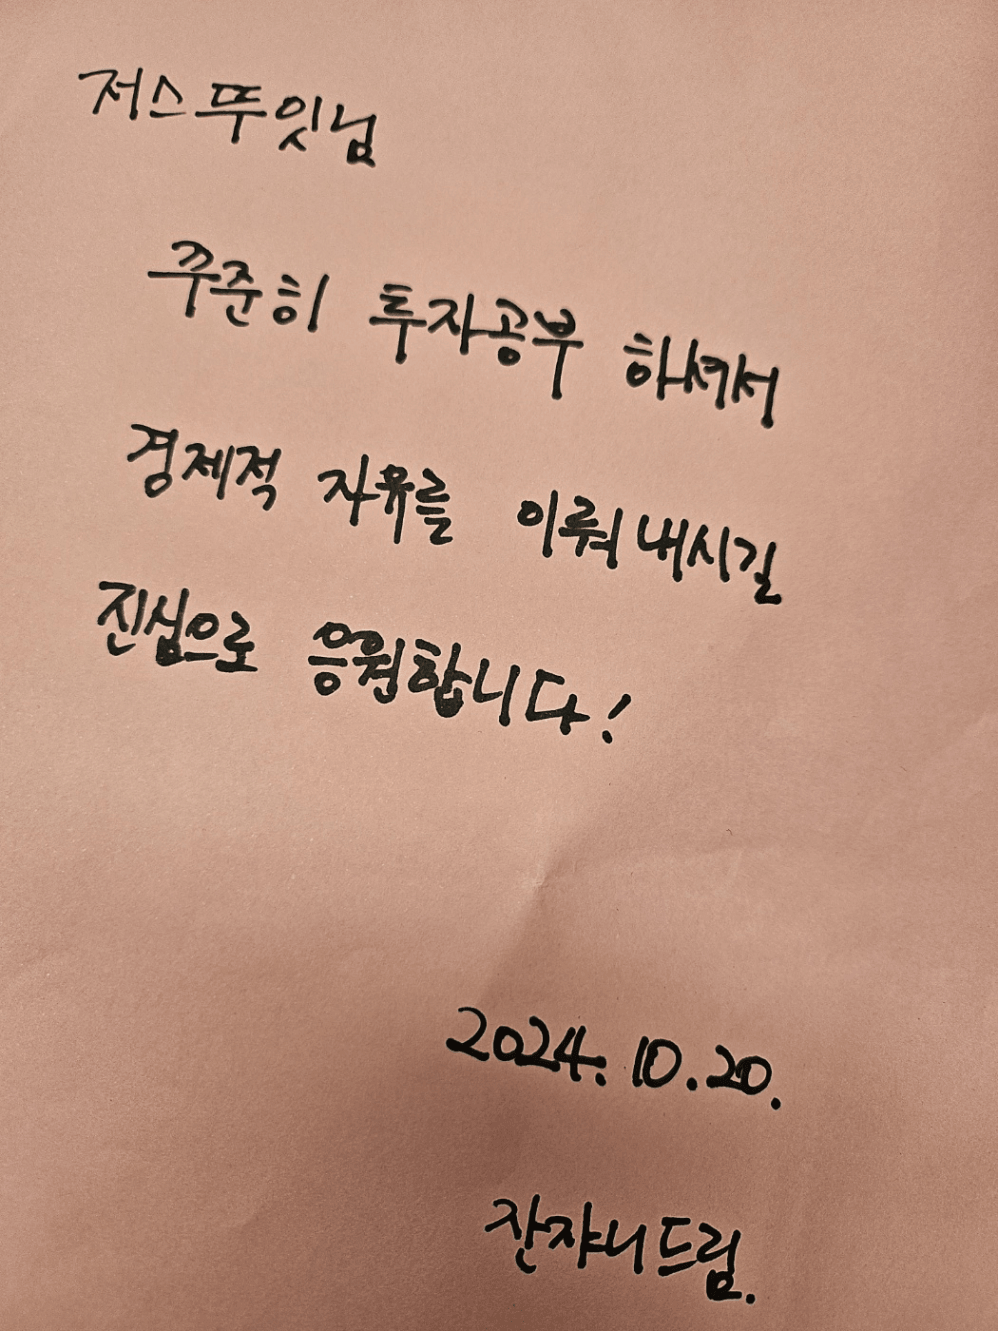 저스뚜잇님
꾸준히 투자공부 하셔서
경제적 자유를 이뤄내시길
진심으로 응원합니다!
2024. 10. 20.
잔쟈니드림.